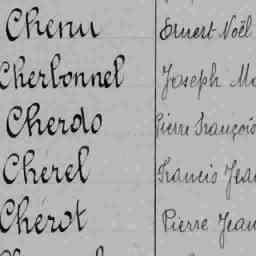 Chenu Ernest Noël
Cherbonnel Joseph Ma
Cherdo Pierre François
Chérel Francis Jea
Chérot Pierre Jean